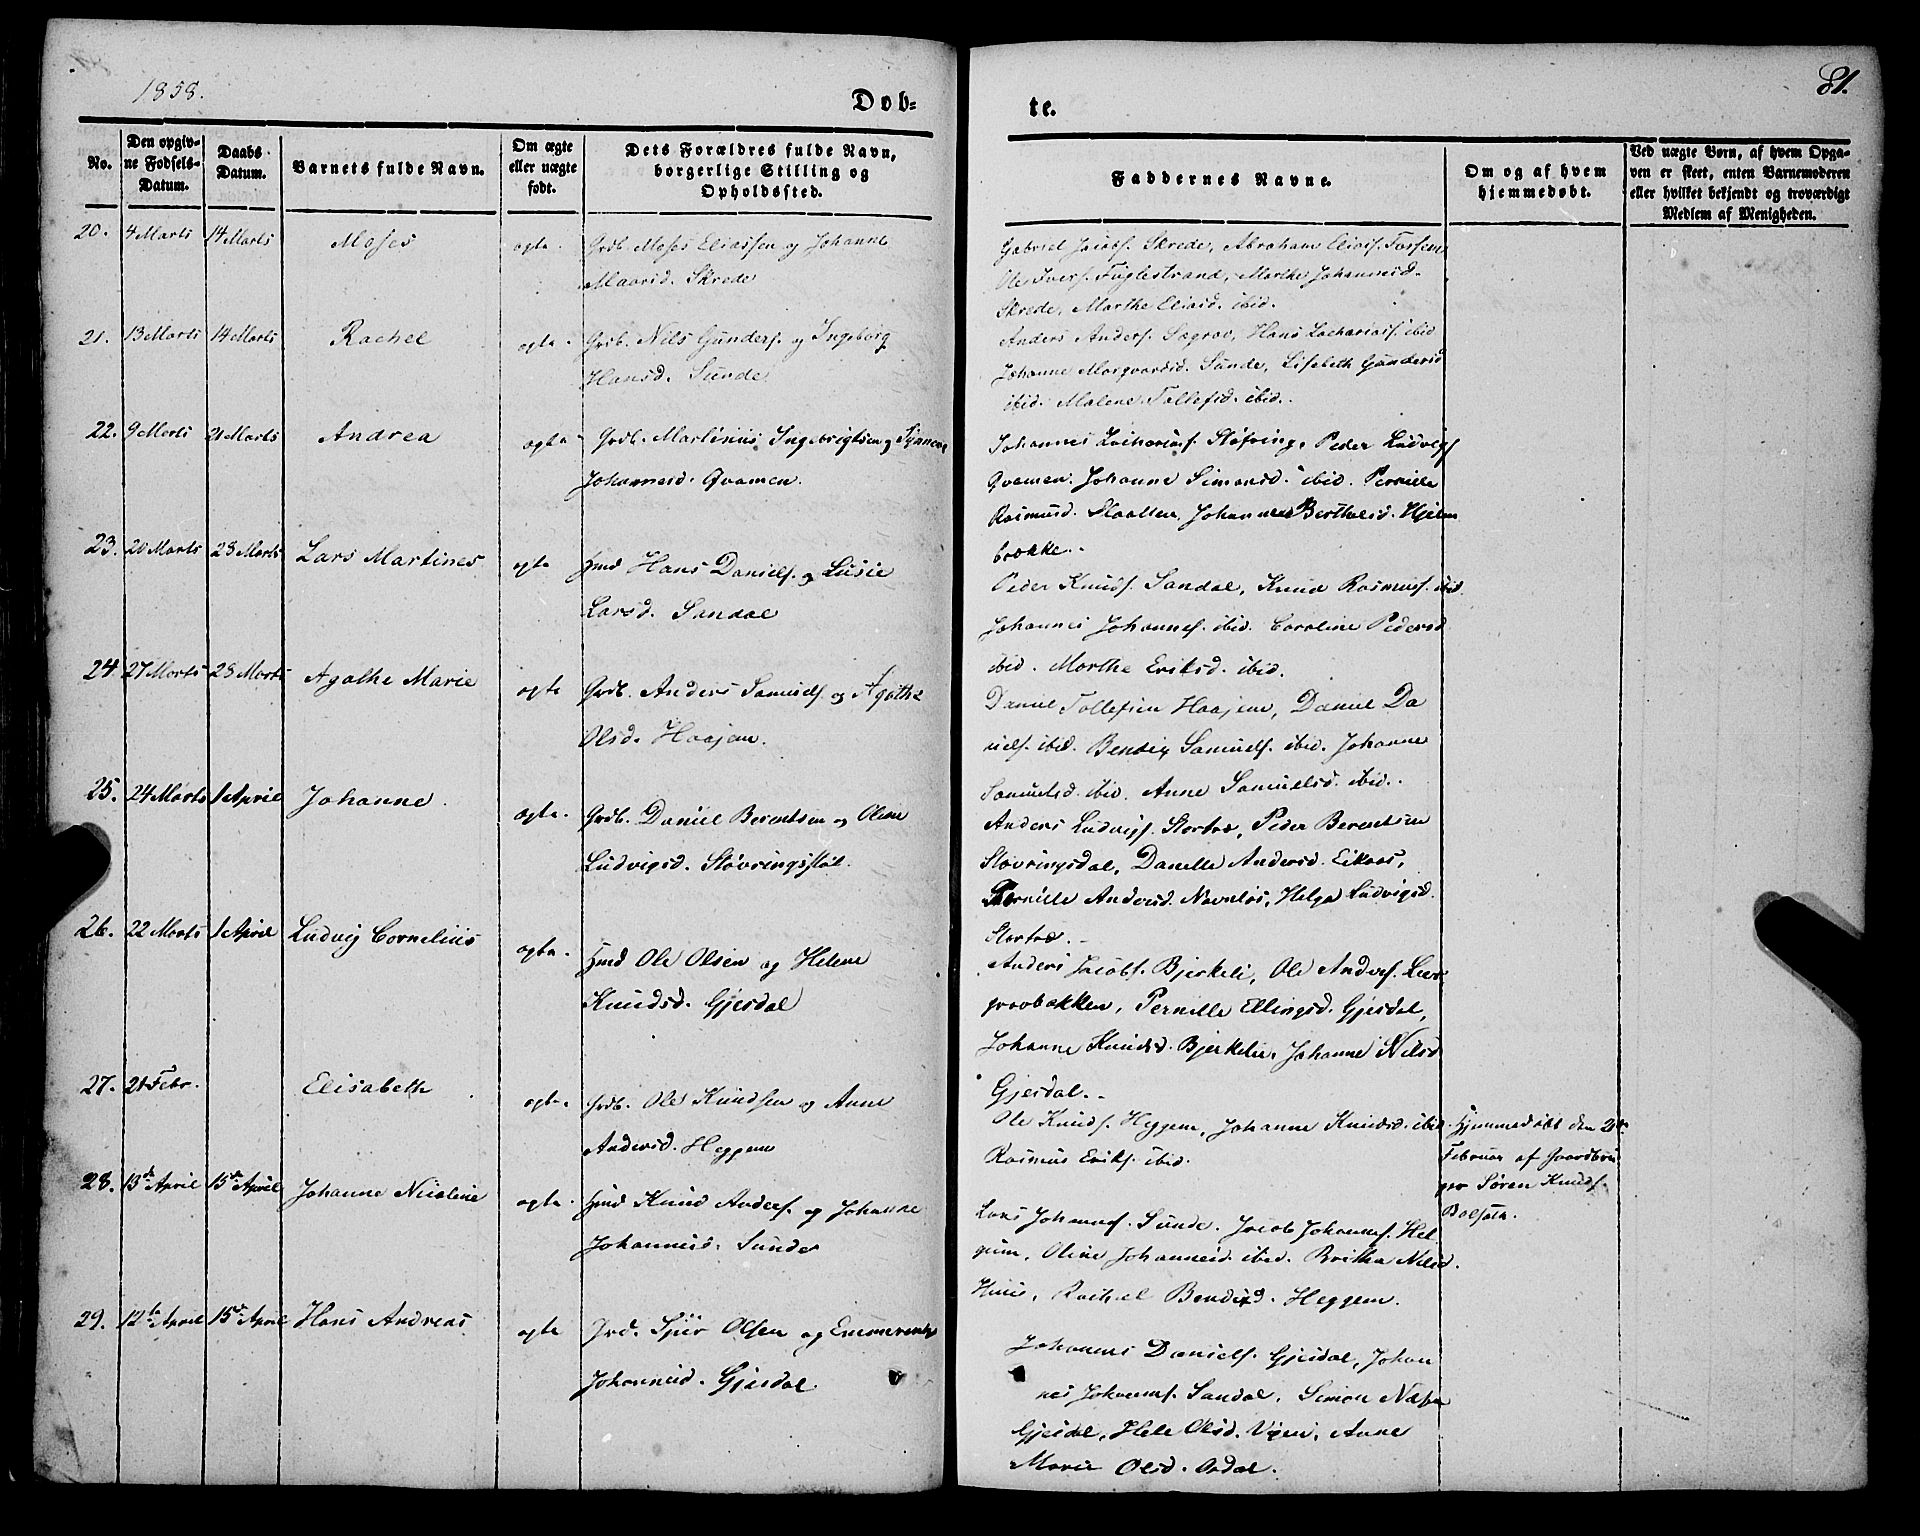 1858.
Døb=
te.
81.
No.
Den opgiv-
ne Fødsels-
Datum.
Daabs
Datum.
Barnets fulde Navn.
Om ægte
eller uægte
født.
Dets Forældres fulde Navn,
borgerlige Stilling og
Opholdssted.
Faddernes Navne.
Om og af hvem
hjemmedøbt.
Ved uægte Børn, af hvem Opga-
ven er skeet, enten Barnemoderen
eller hvilket bekjendt og troværdigt
Medlem af Menigheden.
20. 4 Marts 14 Marts Moses ægte. Grdb. Moses Eliassen og Johanne
Skrede
Gabriel Jacobs. Skrede, Abraham Eliass.
Ole Ivers. Fuglestrand, Marthe Johannesd.
Skrede, Marthe Eliasd. ibid.
21. 13 Marts 14 Marts Rachel ægte. Grdb. Nils Gunders. og Ingeborg
Hansd. Sunde
Anders Anders. Sægrov, Hans Zachariass. ibid
Johanne Margvardsd. Sunde, Lisebeth Gundersd
ibid. Malene Tollefsd. ibid.
22. 9 Marts 21 Marts Andrea ægte Grdb. Martinus Ingebrigtsen og Synneve
Johannesd. Qvamen.
Johannes Zachariass. Støfring, Peder Ludvigs
Qvamen. Johanne Simonsd. ibid. Pernille
Rasmusd. Johanne Bertholsd. Hjelm
brække.
23. 20 Marts 28 Marts Lars Martines ægte Hmd Hans Daniels. og Lusie
Larsd. Sandal
Peder Knuds. Sandal, Knud Rasmus. ibid.
Johannes Johannes. ibid. Caroline Pedersd
ibid. Marthe Eriksd. ibid.
24. 27 Marts 28 Marts Agathe Marie ægte Grdb. Anders Samuels. og Agathe
Olsd. Haajem.
Daniel Tollefsen Haajem, Daniel Da
niels. ibid. Bendix Samuels. ibid. Johanne
Samuelsd. ibid. Anne Samuelsd. ibid.
25. 24 Marts 1 April Johanne. ægte. Grdb. Daniel Berentsen og Oline
Ludvigsd. Støvringsstøl.
Anders Ludvigs. Stortræ, Peder Berentsen
Støvringsdal, Danielle Andersd. Eikaas,
Pernille Andersd. Navnløs, Helga Ludvigsd.
Stortræ.
26. 22 Marts 1 April Ludvig Cornelius ægte. Hmd Ole Olsen og Helene
Knudsd. Gjesdal
Anders Jacobs. Bjerkeli, Ole Anders. Leer
gravbakken, Pernille Ellingsd. Gjesdal,
Johanne Knudsd. Bjerkelie, Johanne Nilsd
Gjesdal.
27. 21 Febr. Elisabeth ægte. Grdb. Ole Knudsen og Anne
Andersd. Heggem
Ole Knuds. Heggem, Johanne Knudsd. ibid.
Rasmus Eriks. ibid.
Hjemmedøbt den 21de
Februar af Gaardbru
ger Søren Knuds.
28. 13de April 15de April Johanne Nicoline ægte. Hmd Knud Anders. og Johanne
Johannesd. Sunde
Lars Johannes. Sunde. Jacob Johannes. Hel
gum, Oline Johannesd. ibid. Britha Nilsd.
Huus, Rachel Bendixd. Heggem.
29. 12te April 15de April Hans Andreas ægte Grd. Sjur Olsen og Emmerentse
Johannesd. Gjesdal
Johannes Daniels. Gjesdal, Johan
nes Johannes. Sandal, Simon
Gjesdal, Hele Olsd. Anne
Marie Olsd. Aardal.